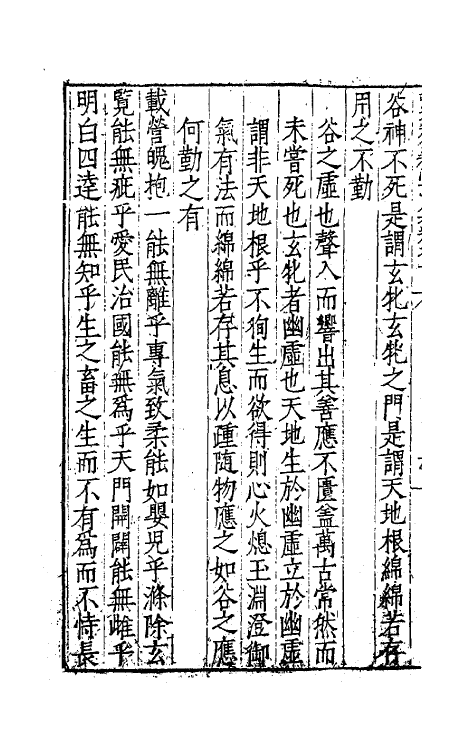 谷神不死是謂玄牝玄牝之門是謂天地根綿綿若存
用之不勤
谷之虛也聲入而響出其善應不匱盖萬古常然而
未嘗死也玄牝者幽虛也天地生於幽虛立於幽虛
謂非天地根乎不狥生而欲得則心火熄玉淵澄御
氣有法而綿綿若存其息以踵隨物應之如谷之應
何勤之有
載營魄抱一能無離乎專氣致柔能如嬰兒乎滌除玄
覽能無疵乎愛民治國能無爲乎天門開闔能無雌乎
明白四達能無知乎生之畜之生而不有爲而不恃長